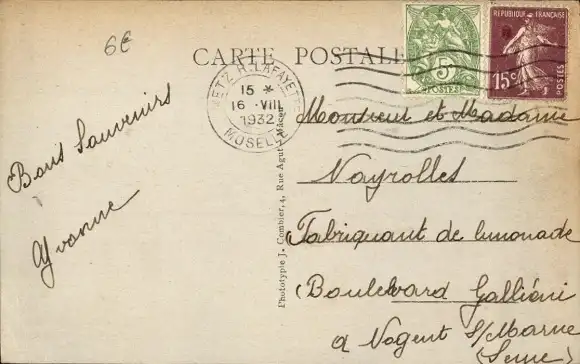 6€
CARTE POSTALE
METZ R. LAFAYETTE
15 *
16 VIII
1932
MOSELLE
5c
POSTES
RÉPUBLIQUE FRANÇAISE
15c
POSTES
Bons Souvenirs
Yvonne
Phototypie J. Combier, 4, Rue Agut - Macon
Monsieur et Madame
Nayrolles
Fabriquant de limonade
Boulevard Galliéni
a Nogent s/Marne
(Seine)